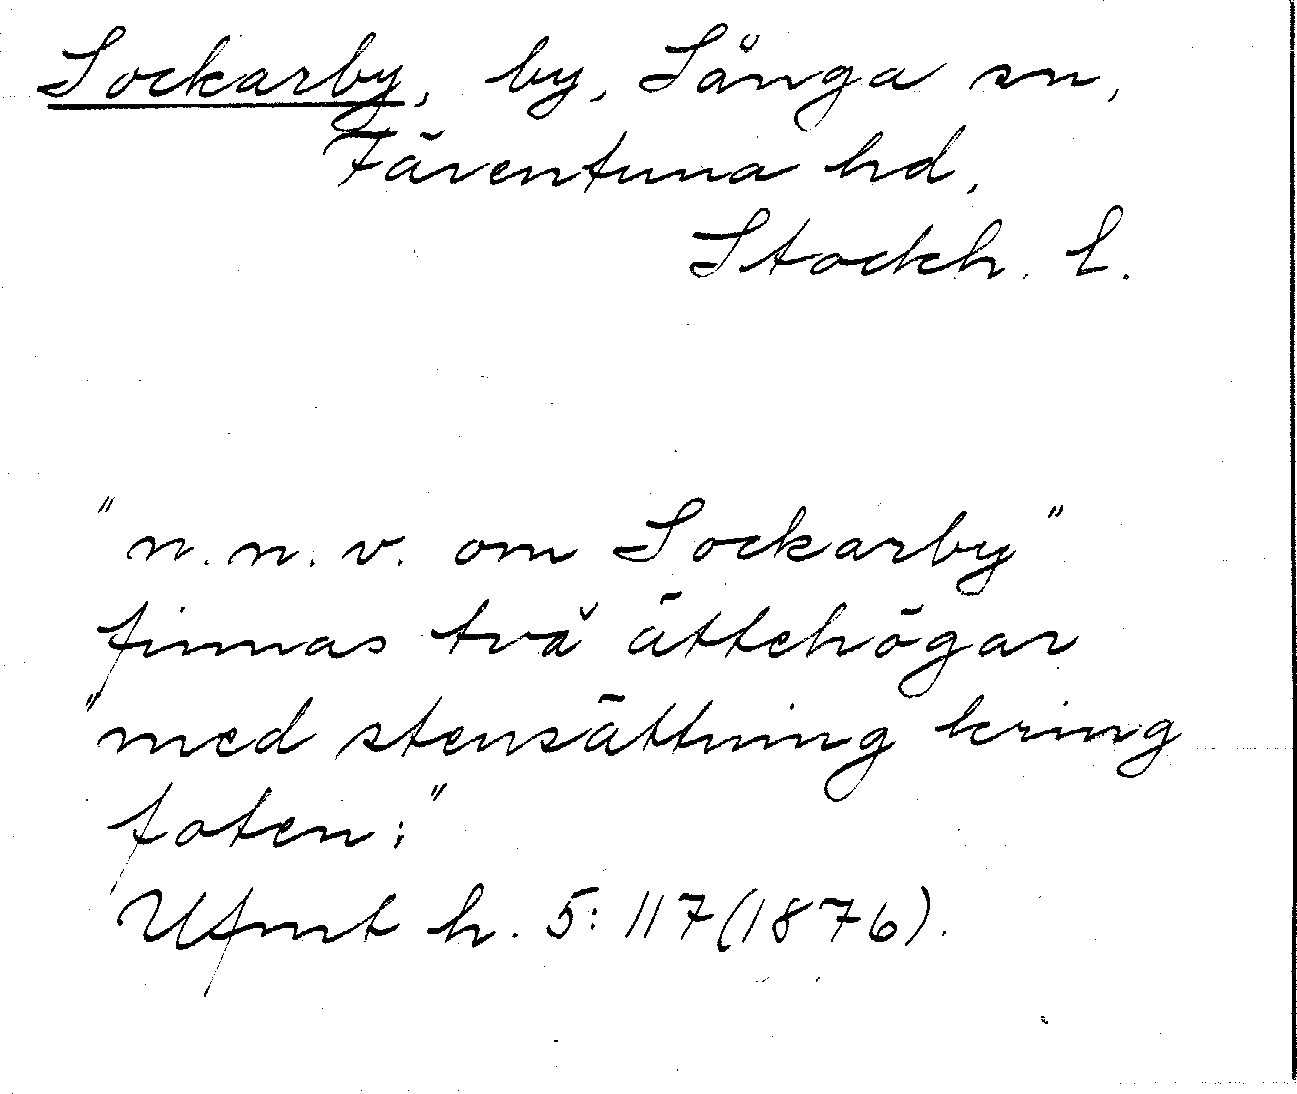 Sockarby, by, Sånga sn,
Färentuna hd,
Stockh. l.
"n.n.v. om Sockarby"
finnas två ättehögar
"med stensättning kring
foten;"
Ufmt h. 5: 117 (1876).